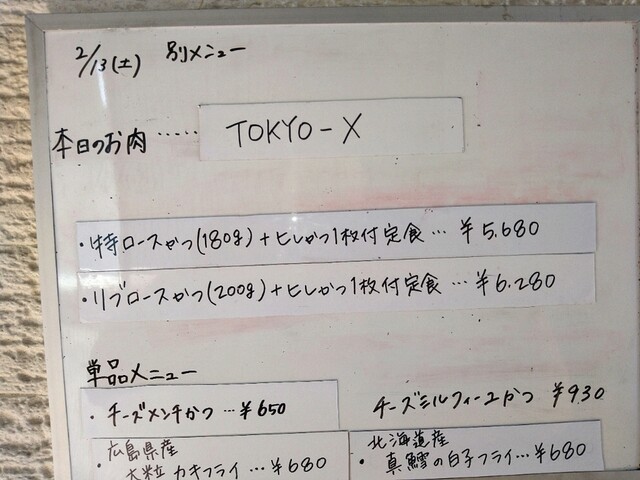 2/13(土) 別メニュー
本日のお肉 ····· TOKYO-X
・特ロースかつ(180g)+ヒレかつ1枚付定食…¥5.680
・リブロースかつ(200g)+ヒレかつ1枚付定食…¥6.280
単品メニュー
・チーズメンチかつ…¥650
チーズミルフィーユかつ ¥930
・広島県産
大粒カキフライ…¥680
・北海道産
真鱈の白子フライ…¥680